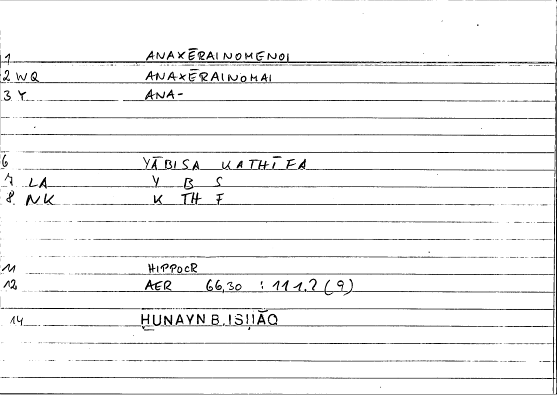 1 ANAXĒRAINOMENOI
2 WQ ANAXĒRAINOMAI
3 Y ANA-
6 YĀBISA KATHĪFA
7 LA Y B S
8 NK K TH F
11 HIPPOCR
12 AER 66,30 : 111.2 (9)
14 ḤUNAYN B. ISḤĀQ